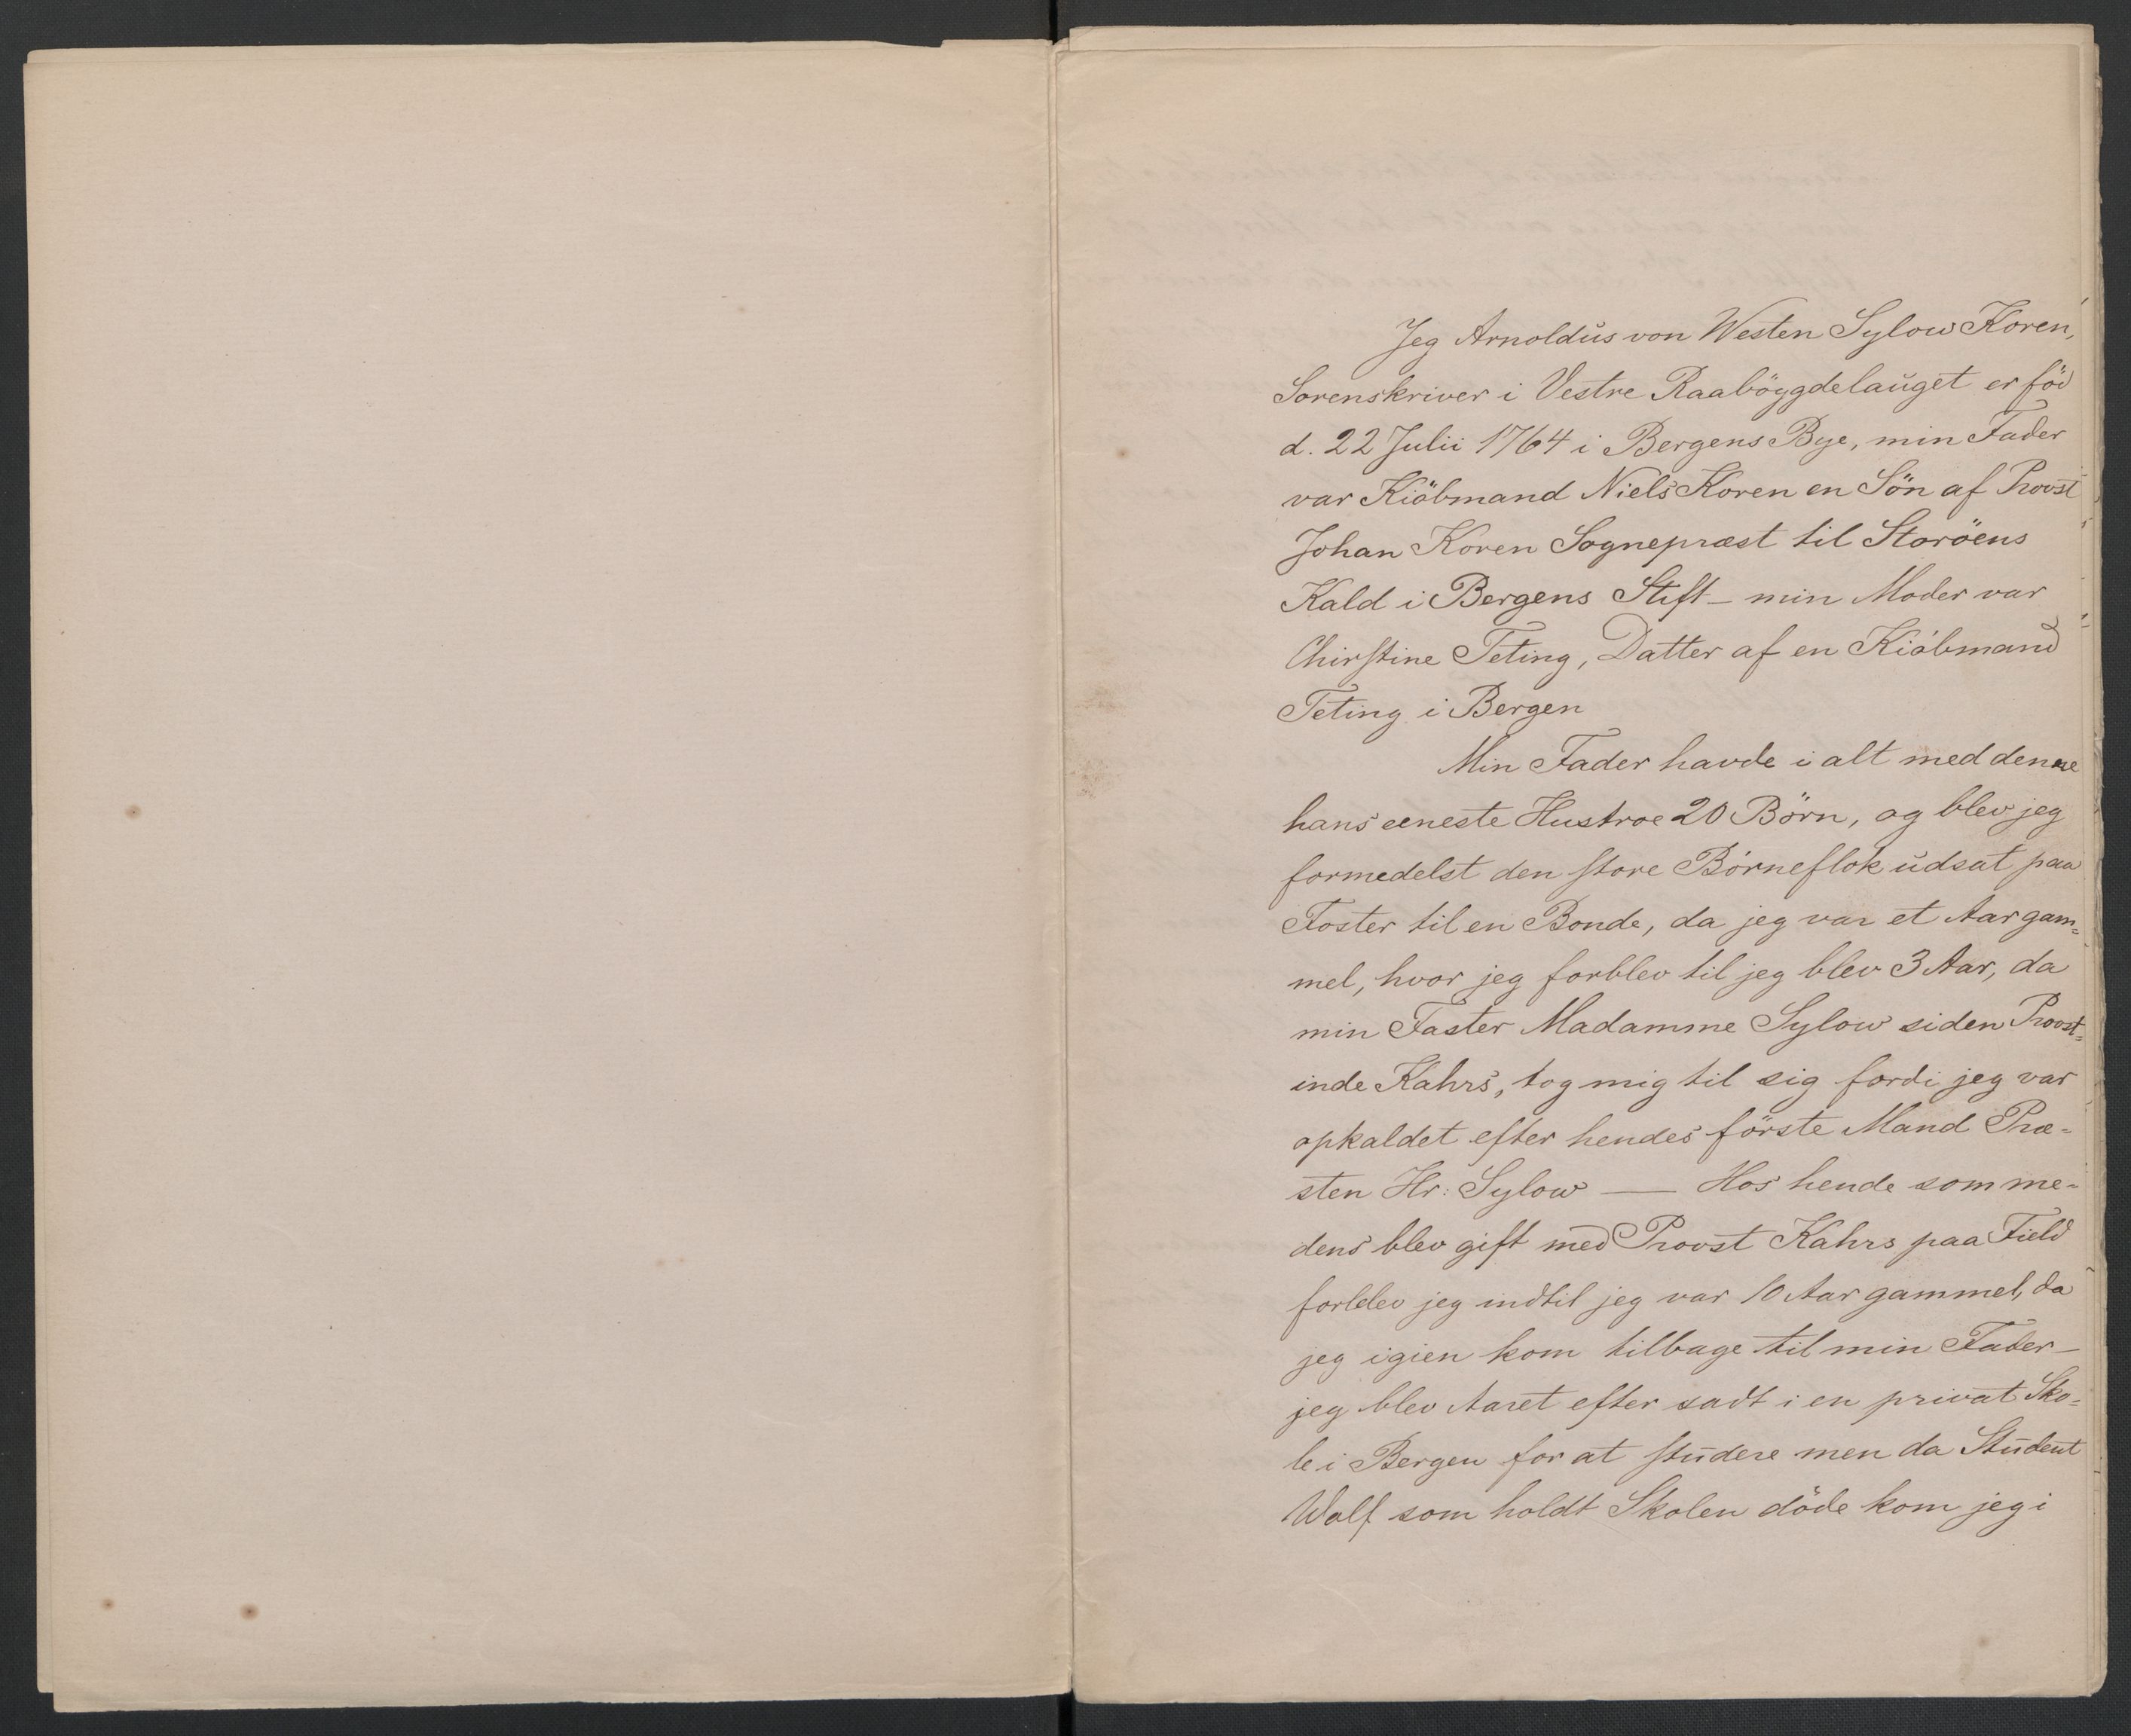 Jeg Arnoldus von Westen Sylow Koren,
Sorenskriver i Vestre Raaböygdelauget er föd
d. 22 Julii 1764 i Bergens Bye, min Fader
var Kiöbmand Niels Koren en Sön af Provst
Johan Koren Sognepræst til Storöens
Kald i Bergens Stift – min Moder var
Chirstine Teting, Datter af en Kiöbmand
Teting i Bergen
Min Fader havde i alt med denne
hans eeneste Hustroe 20 Börn, og blev jeg
formedelst den store Börneflok udsat paa
Foster til en Bonde, da jeg var et Aar gam=
mel, hvor jeg forblev til jeg blev 3 Aar, da
min Faster Madamme Sylow siden Provst=
inde Kahrs, tog mig til sig fordi jeg var
opkaldet efter hendes förste Mand Præ=
sten Hr: Sylow — Hos hende som me=
dens blev gift med Provst Kahrs paa Field
forblev jeg indtil jeg var 10 Aar gammel, da
jeg igien kom tilbage til min Fader –
jeg blev Aaret efter sadt i en privat Sko=
le i Bergen for at studere men da Student
Wolf som holdt Skolen döde kom jeg i